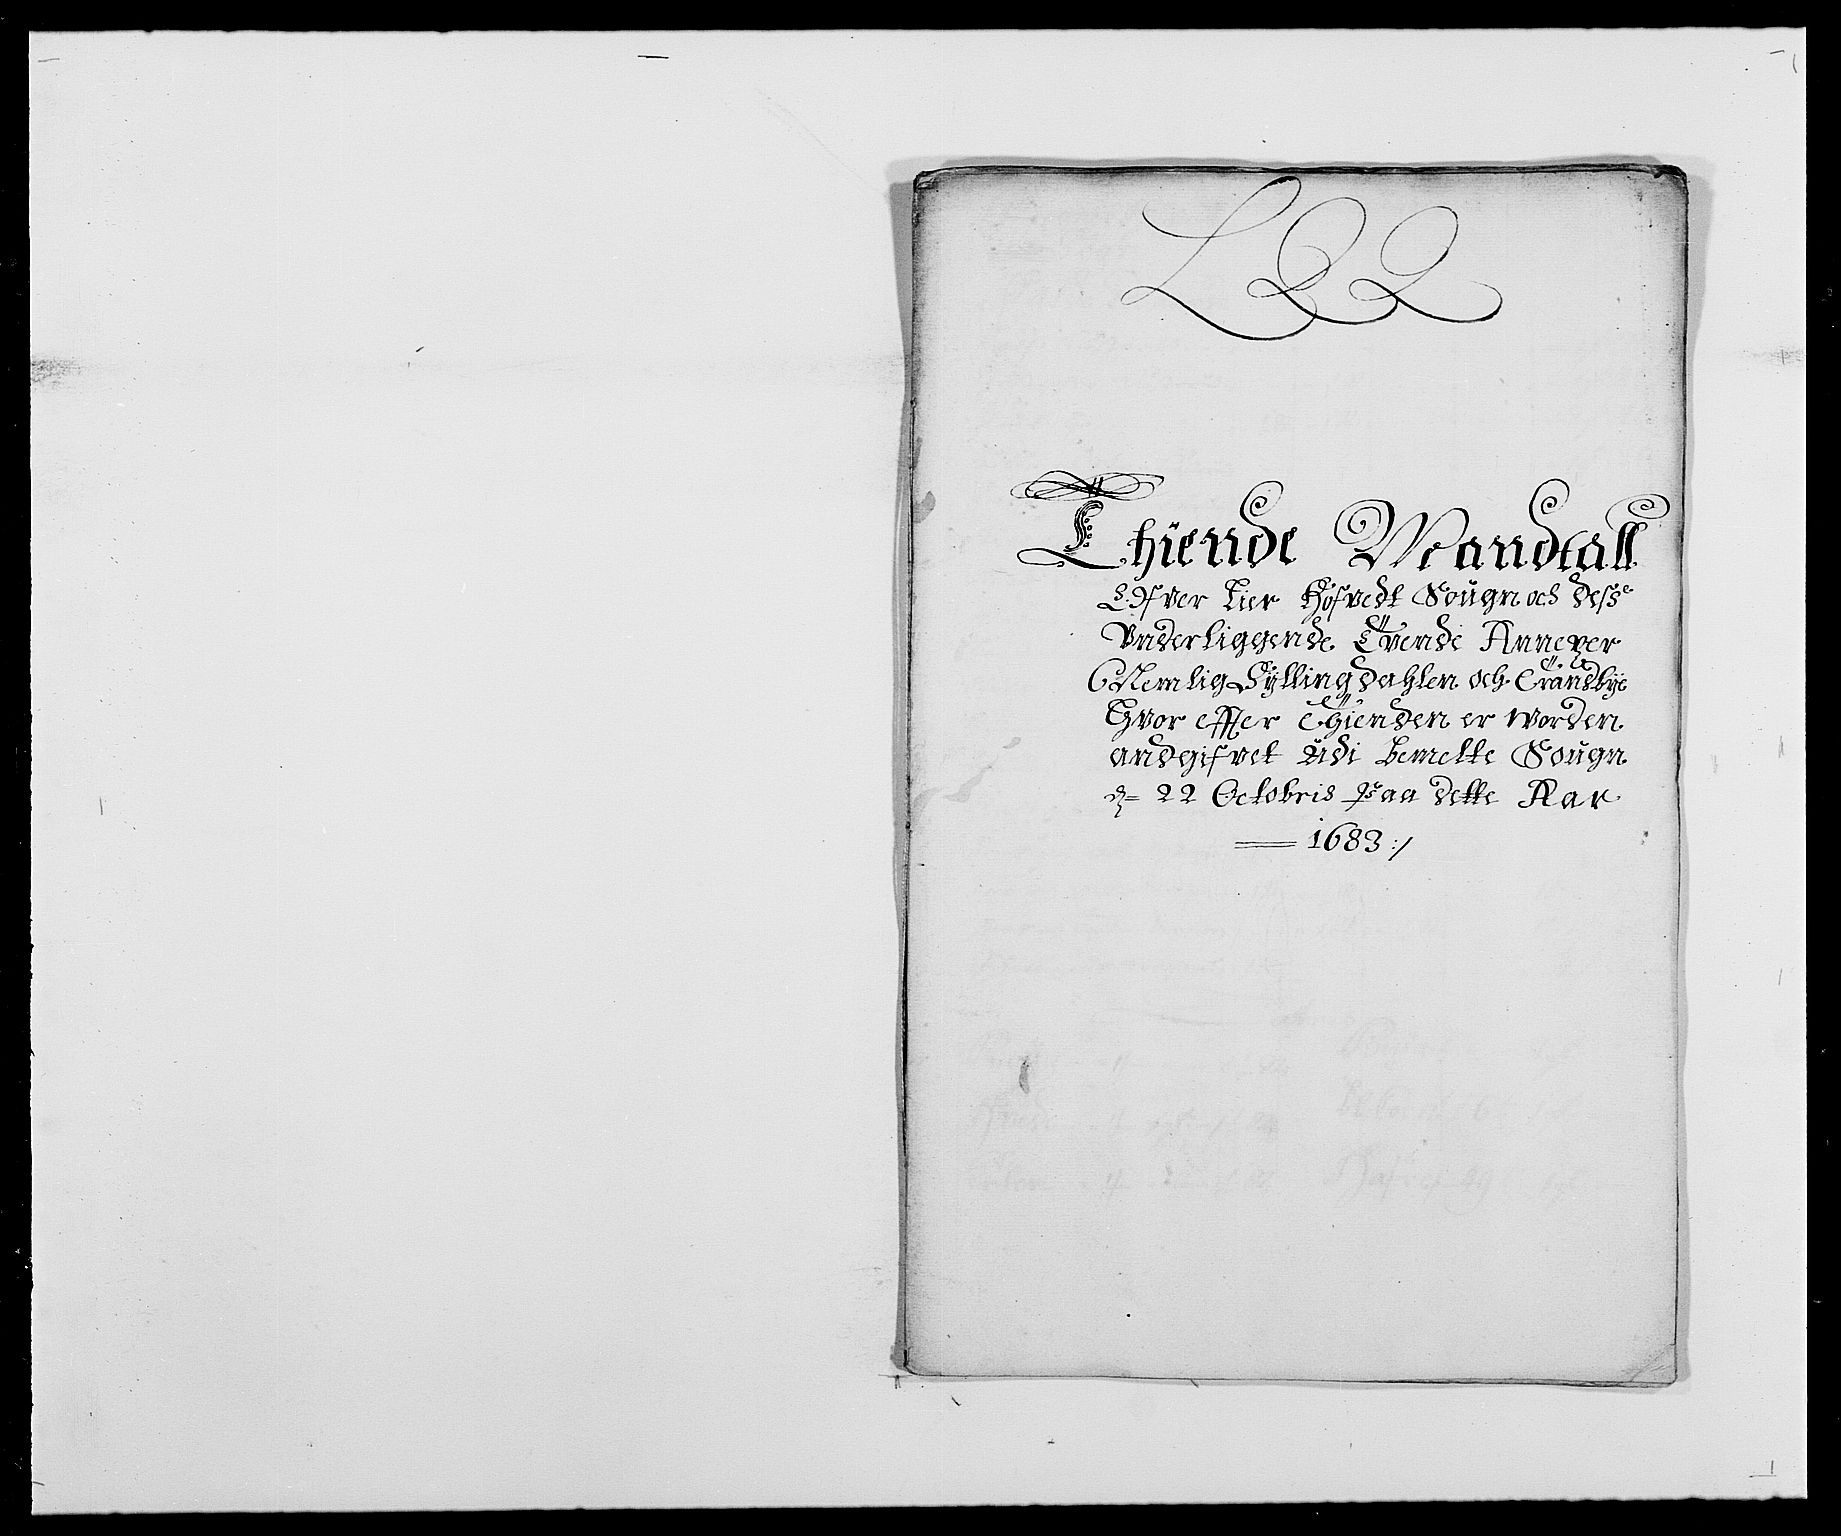 L 22
Thiende Mandtall
Ofver Lier Hofvedt Sougn och dess
Underliggende Tvende Annexer
Nemlig Syllingdahlen och Tranbye
Hvor effter Thienden er worden
andgifvet udi bemelte Sougn
d= 22 Octobris Paa dette Aar
1683 :/